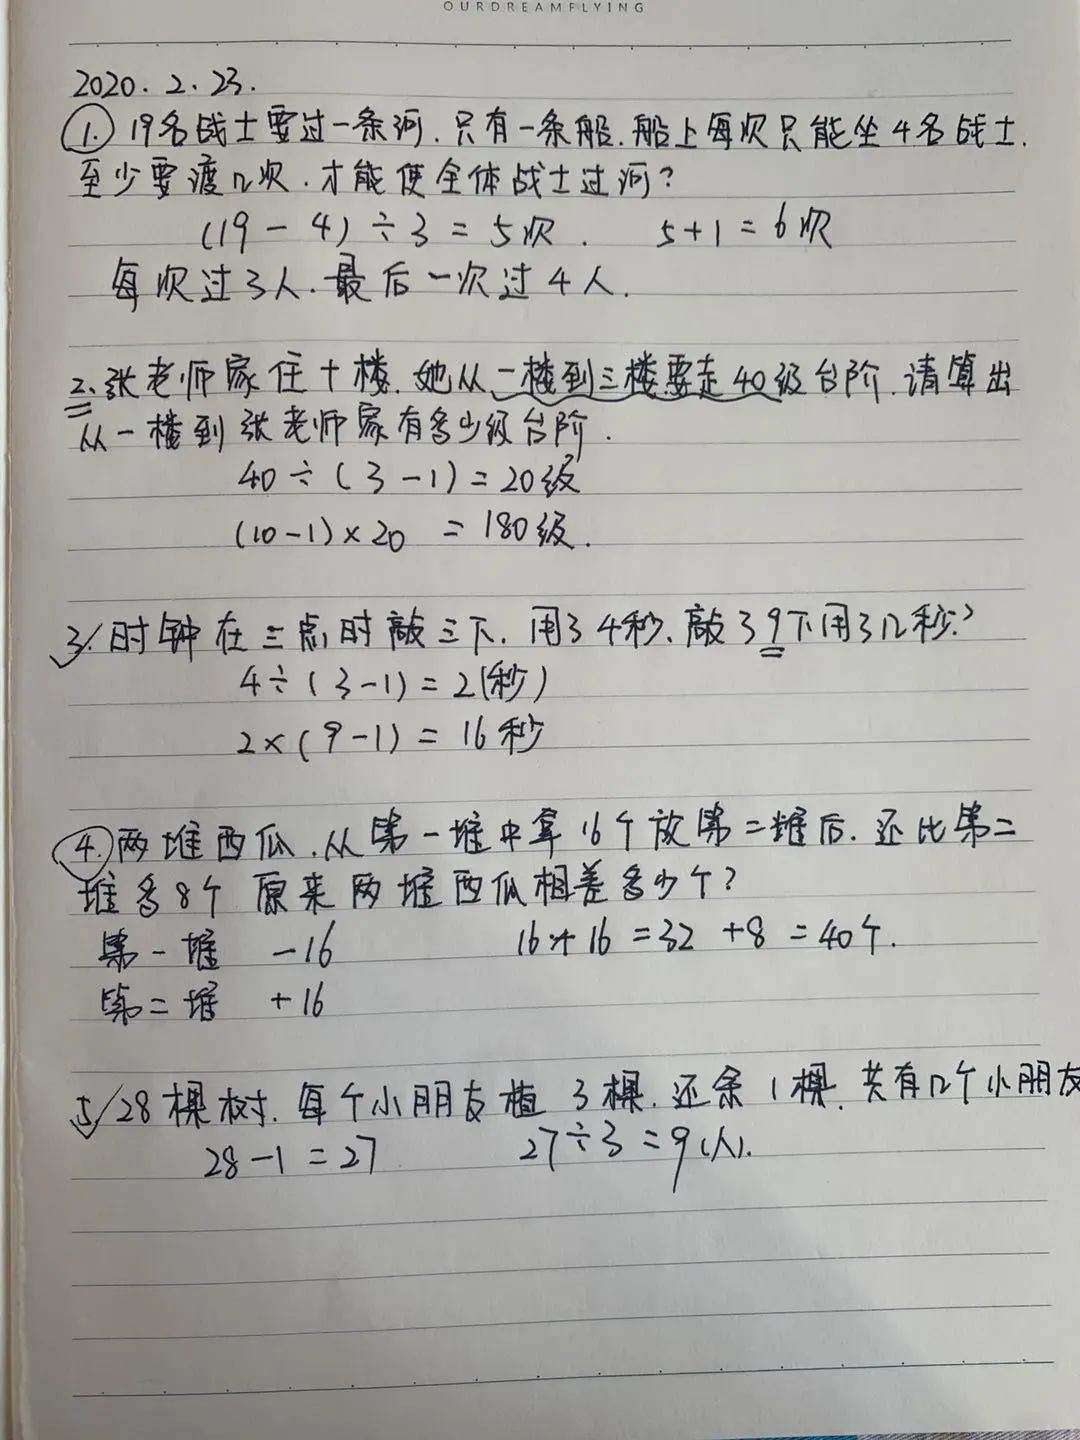 OURDREAMFLYING
2020.2.23.
①. 19名战士要过一条河.只有一条船.船上每次只能坐4名战士.
至少要渡几次.才能使全体战士过河?
(19-4)÷3=5次. 5+1=6次
每次过3人.最后一次过4人.
2.张老师家住十楼.她从一楼到三楼要走40级台阶.请算出
从一楼到张老师家有多少级台阶.
40÷(3-1)=20级
(10-1)×20 =180级.
3.时钟在三点时敲三下.用了4秒.敲了9下用了几秒?
4÷(3-1)=2(秒)
2×(9-1)=16秒
④.两堆西瓜.从第一堆中拿16个放第二堆后.还比第二
堆多8个 原来两堆西瓜相差多少个?
第一堆 -16 16+16=32 +8=40个.
第二堆 +16
5.28棵树.每个小朋友植3棵.还余1棵.共有几个小朋友
28-1=27 27÷3=9(人).